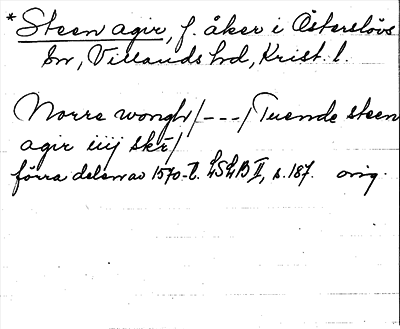 *Steen agir, f. åker i Österslövs
sn, Villands hd, Krist. l.
Norre wongh/---/Tuende steen
agir iiij skr/
förra delen av 1570-t. LSLB II, s. 187. orig.